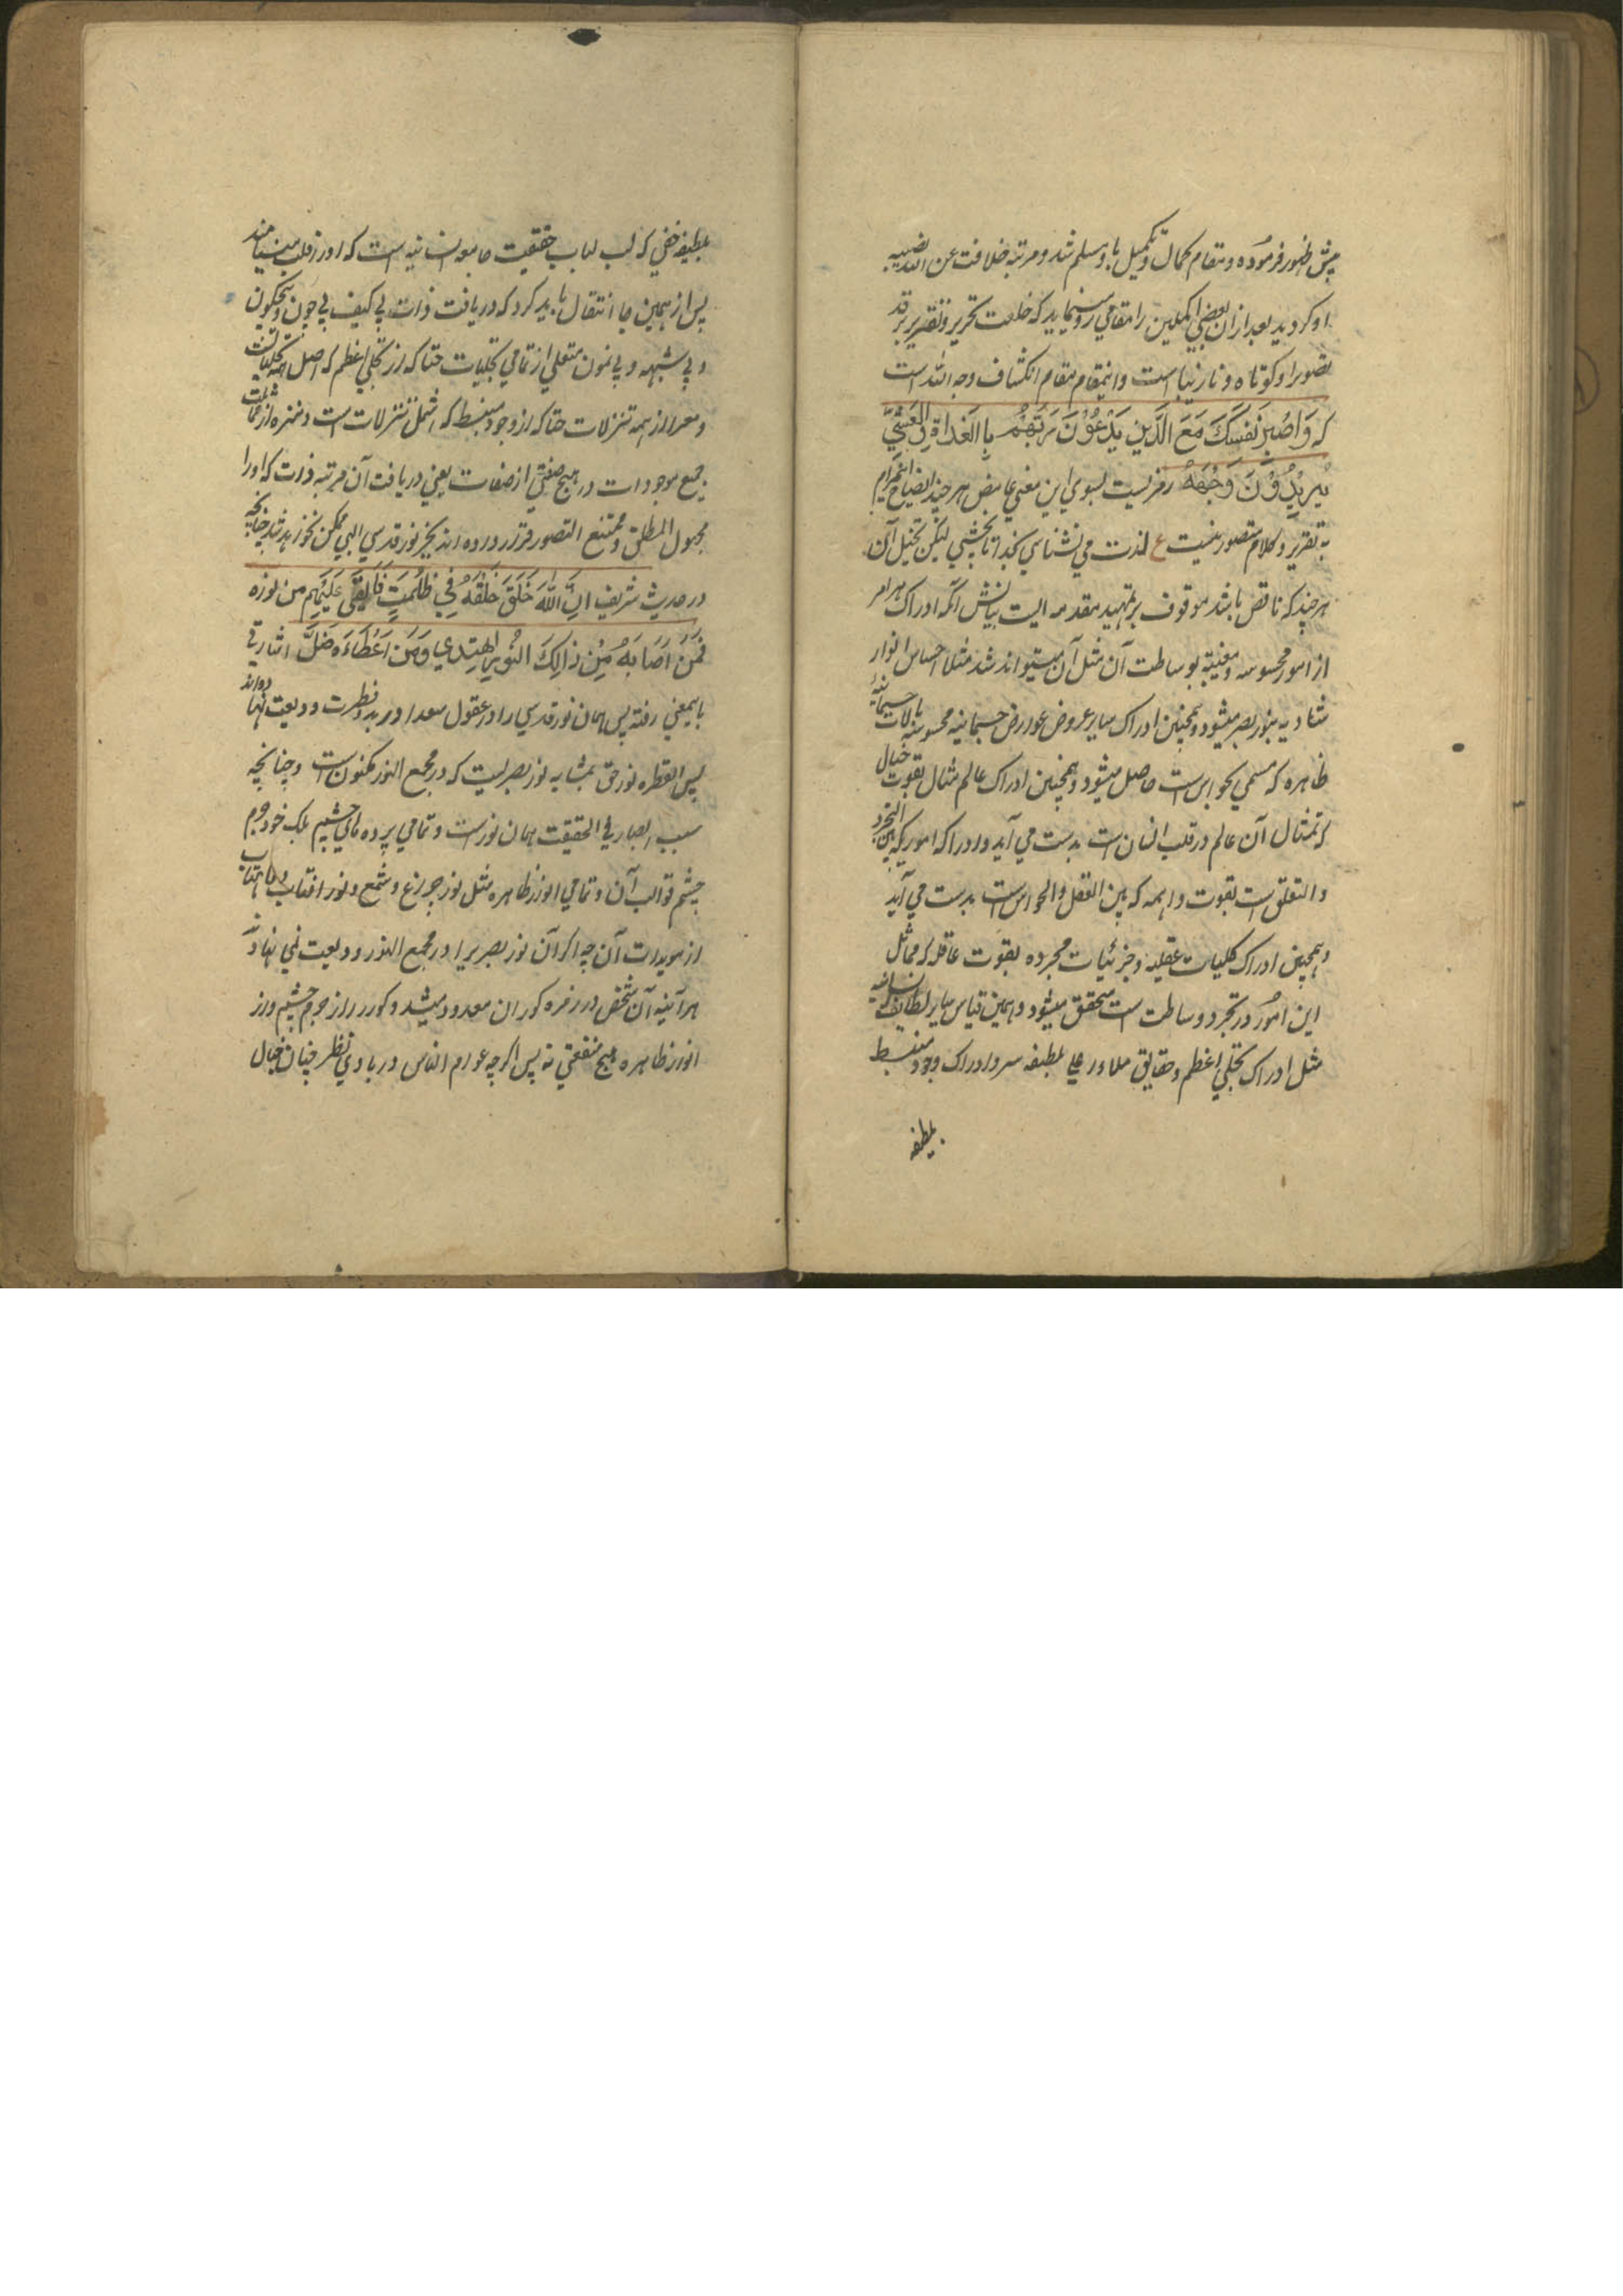 پیش ظهور فرموده و مقام کمال و تکمیل باو مسلم شد و مرتبه خلافت عن الله نصیبه
او کردید بعد از ان بعضی اکملین را مقامی رو مینماید که خلعت تحریر و تقریر بر قد
تصویر او کوتاه و نارسا است و اینمقام مقام انکشاف وجه الله است
که وَاصْبِرْ نَفْسَکَ مَعَ الَّذِینَ یَدْعُوْنَ رَبَّهُمْ بِالْغَدَاةِ وَالْعَشِیِّ
یُرِیْدُوْنَ وَجْهَهُ رمزیست بسوی این معنی غامض هر چند ایضاح این مرام
به تقریر و کلام متصور نیست ع لذت می نشناسی بخدا تا نچشی لیکن تخیل آن
هر چند که ناقص باشد موقوف بر تمهید مقدمه ایست بیانش آنکه ادراک هر امر
از امور محسوسه و مغیبه بوساطت آن مثل آن میتواند شد مثلا احساس انوار
بنور بصر میشود و همچنین ادراک سایر عروض عوارض جسمانیه محسوسه بآلات جسمانیه
ظاهره که مسمی بحواس است حاصل میشود و همچنین ادراک عالم مثال بقوت خیال
که تمثال آن عالم در قلب انسان است بدست می آید و ادراک اموریکه بین التجرد
والتعلق است بقوت واهمه که بین العقل والحواس است بدست می آید
و همچنین ادراک کلیات عقلیه و جزئیات مجرده بقوت عاقله که مماثل
این امور در تجرد و ساطت است متحقق میشود و همین قیاس سایر لطایف انسانیه
مثل ادراک تجلی اعظم و حقایق ملاء اعلی بلطیفه سر و ادراک وجود منبسط
بلطیفه
بلطیفه خفی که لب لباب حقیقت جامعه انسانیه است که او را قلب مینامند
پس از همین جا انتقال باید کرد که دریافت ذات بی کیف بی چون و بیچگون
و بی شبهه و بی نمون متعالی از تمامی تجلیات حتا که از تجلی اعظم که اصل همه تجلیات است
و معرا از همه تنزلات حتا که از وجود منبسط که اشمل تنزلات است و منزه از مماثلت
جمیع موجودات در هیچ صفتی از صفات یعنی دریافت آن مرتبه ذات که او را
مجهول المطلق و ممتنع التصور قرار داده اند بجز نور قدسی الهی ممکن نخواهد شد چنانچه
در حدیث شریف اِنَّ اللّٰهَ خَلَقَ خَلْقَهُ فِی ظُلْمَتٍ فَاَلْقَی عَلَیْهِم من نوره
فَمَنْ اَصَابَهُ مِنْ ذَالِکَ النُّوْرِ اهْتَدٰی وَمَنْ اَخْطَاءَهُ ضَلَّ اشارتی
باینمعنی رفته پس همان نور قدسی را در عقول سعدا در بدو فطرت ودیعت نهاده اند
پس القطره نور حق بمثابه نور بصریست که در مجمع النور مکنون است و چنانچه
سبب ابصار فی الحقیقت همان نورست و تمامی پرده های چشم بلک خود جرم
چشم قوالب آن و تمامی انوار ظاهره مثل نور چراغ و شمع و نور افتاب و ماهتاب
از مویدات آن چه اکر آن نور بصری را در مجمع النور ودیعت نمی نهاد
هر آئینه آن شخص در زمره کوران معدود میشد و کور را از جرم چشم و از
انوار ظاهره هیچ منفعتی نه پس اکرچه عوام الناس در بادی نظر چنان خیال